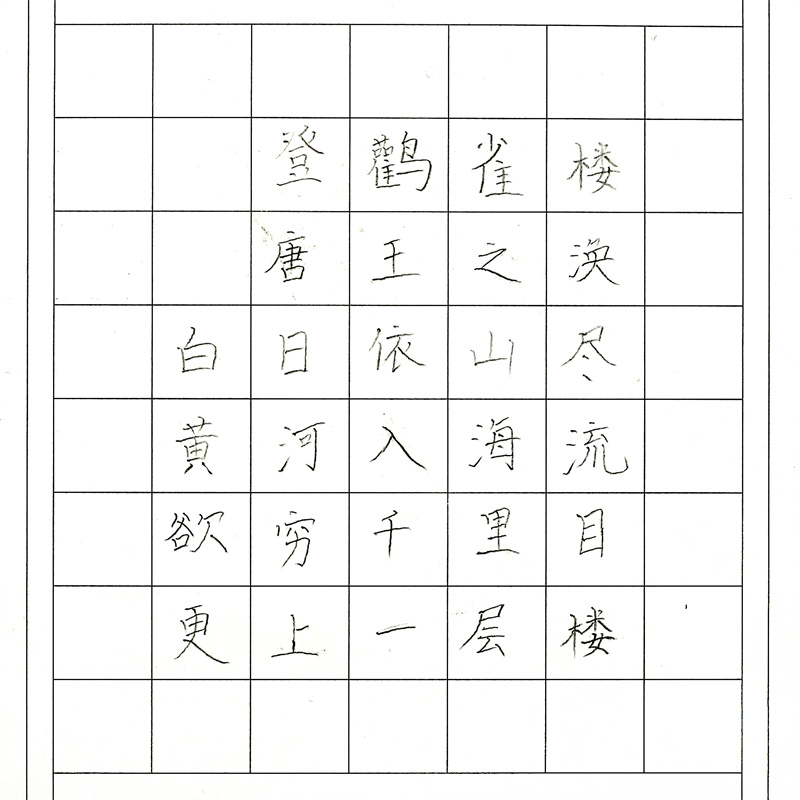 登鹳雀楼
唐王之涣
白日依山尽
黄河入海流
欲穷千里目
更上一层楼